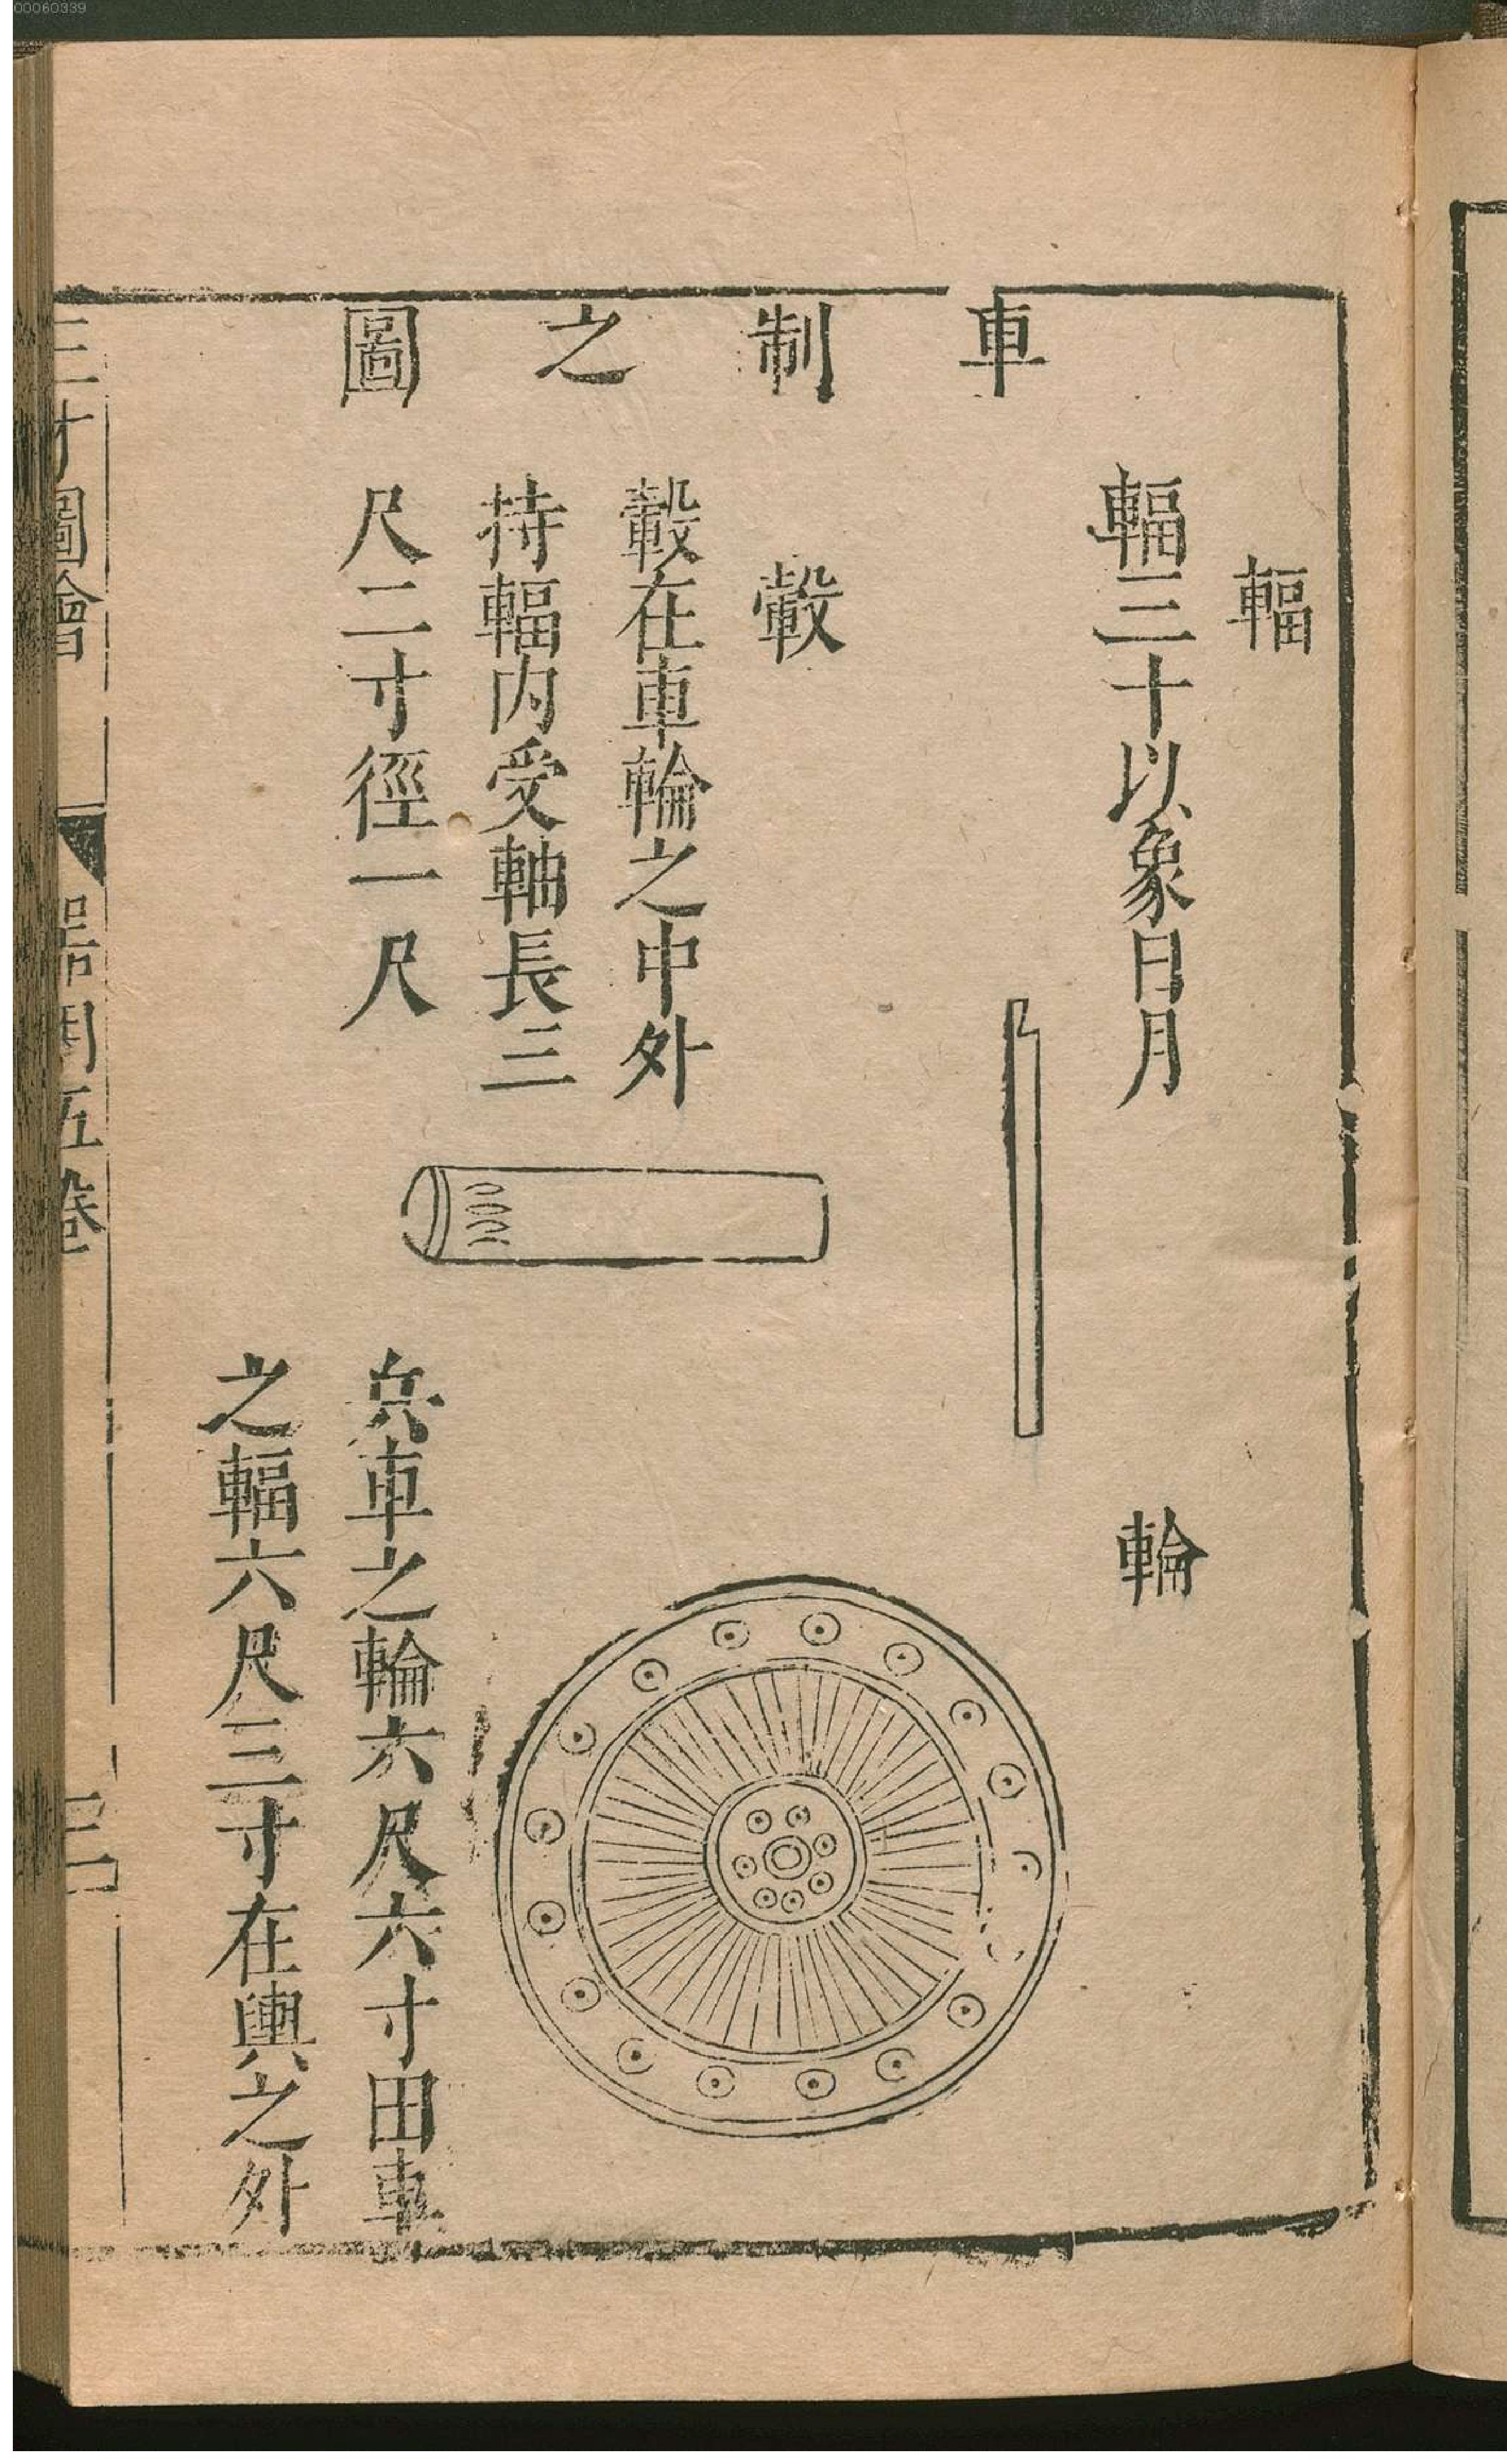 00060339
車制之圖
輻
輻三十以象日月
轂
轂在車輪之中外
持輻内受軸長三
尺二寸徑一尺
輪
兵車之輪六尺六寸田車
之輻六尺三寸在輿之外
三才圖會
器用五卷